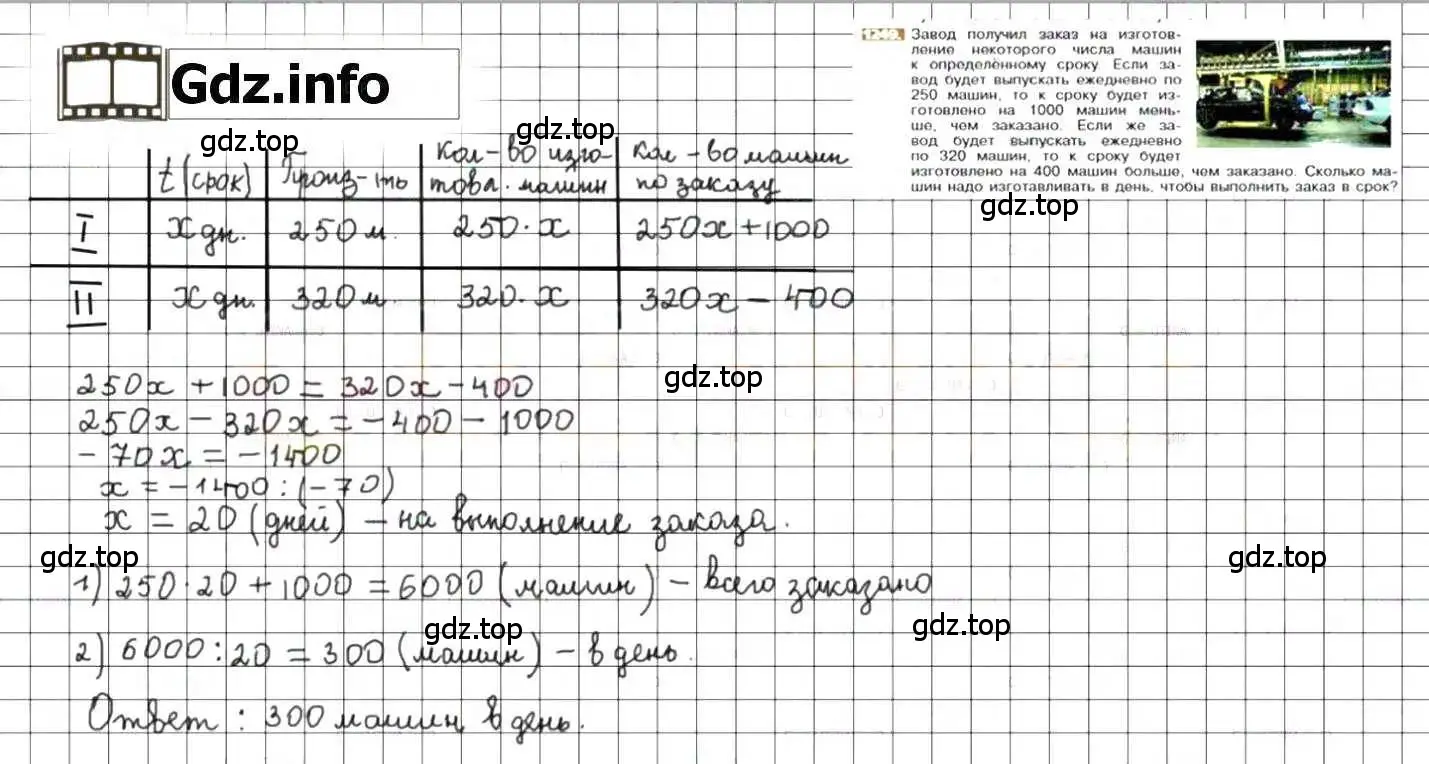 1240. Завод получил заказ на изготов-
ление некоторого числа машин
к определённому сроку Если за-
вод будет выпускать ежедневно по
250 машин, то к сроку будет из-
готовлено на 1000 машин мень-
ше, чем заказано. Если же за-
вод будет выпускать ежедневно
по 320 машин, то к сроку будет
изготовлено на 400 машин больше, чем заказано. Сколько ма-
шин надо изготавливать в день, чтобы выполнить заказ в срок?
Gdz.info
gdz.top
gdz.top
gdz.top
t (срок) Произ-ть Кол-во изго-това. машин Кол-во машин по заказу
I х дн. 250 м. 250·х 250х+1000
II х дн. 320 м. 320·х 320х - 400
250х + 1000 = 320х - 400
gdz.top
250х - 320х = -400 - 1000
-70х = -1400
х = -1400 : (-70)
х = 20 (дней) - на выполнение заказа.
gdz.top
gdz.top
1) 250·20 + 1000 = 6000 (машин) - всего заказано
gdz.top
gdz.top
2) 6000 : 20 = 300 (машин) - в день.
Ответ : 300 машин в день.